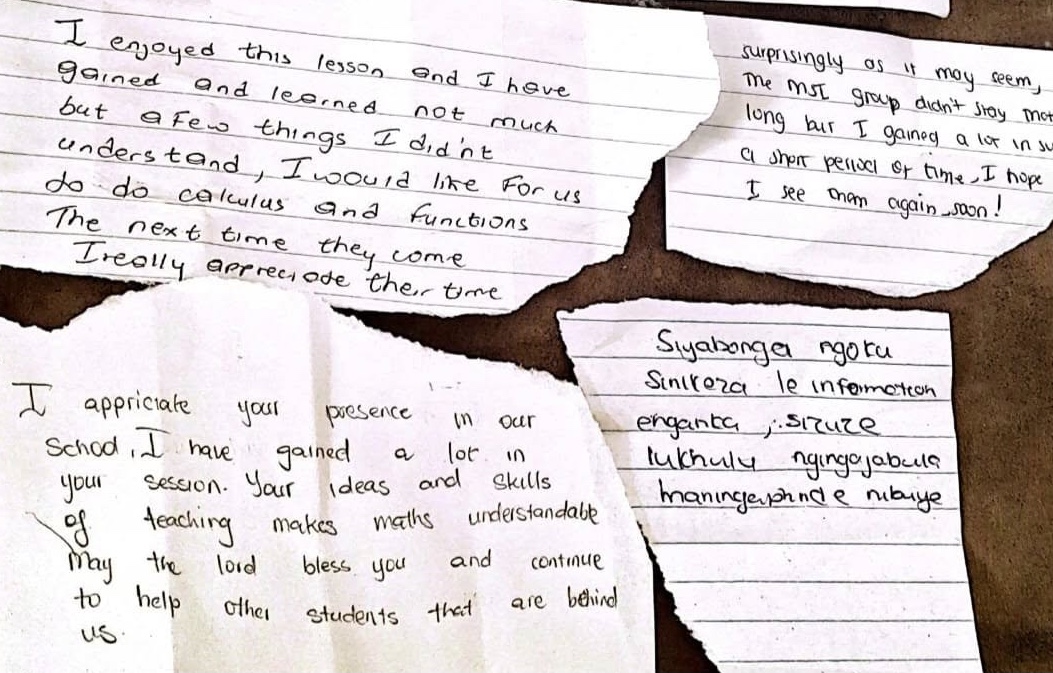 I enjoyed this lesson and I have
gained and learned not much
but a few things I didn't
understand, I would like for us
do do calculus and functions
The next time they come
I really appreciate their time
surprisingly as it may seem,
The MSI group didn't stay
long but I gained a lot in
a short period of time, I hope
I see them again soon!
I appriciate your presence in our
School, I have gained a lot in
your session. Your ideas and skills
of teaching makes maths understandable
May the lord bless you and continue
to help other students that are behind
us.
Siyabonga ngoku
Sinikeza le information
enganka, sizuze
lukhulu ngingajabula
maningaphinde nibuye